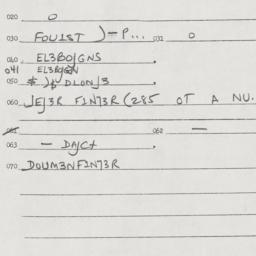 020 O
030 FOUIST )=P... 031 O
040 EL3BOJGNS .
041 EL3BOJGN
050 DLONJ3
060 JEJ3R FINT3R (285 OT A NU.
061 062 —
063 — DAJCT .
070 DOUM3NFINT3R